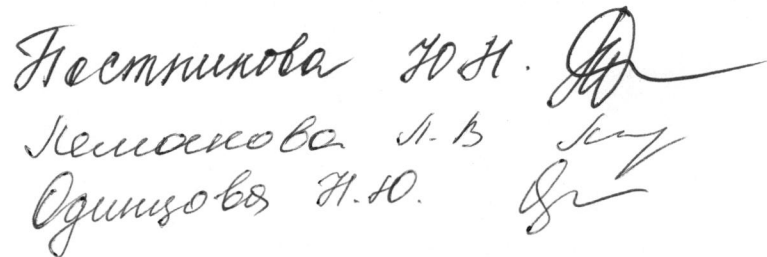 Постникова Ю.Н.
Лемакова Л.В
Одинцова Н.Ю.